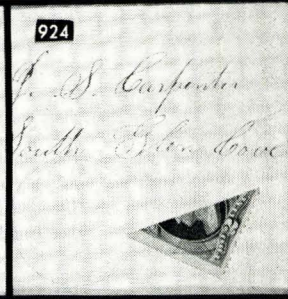 924
J. S. Carpenter
South Glen Cove